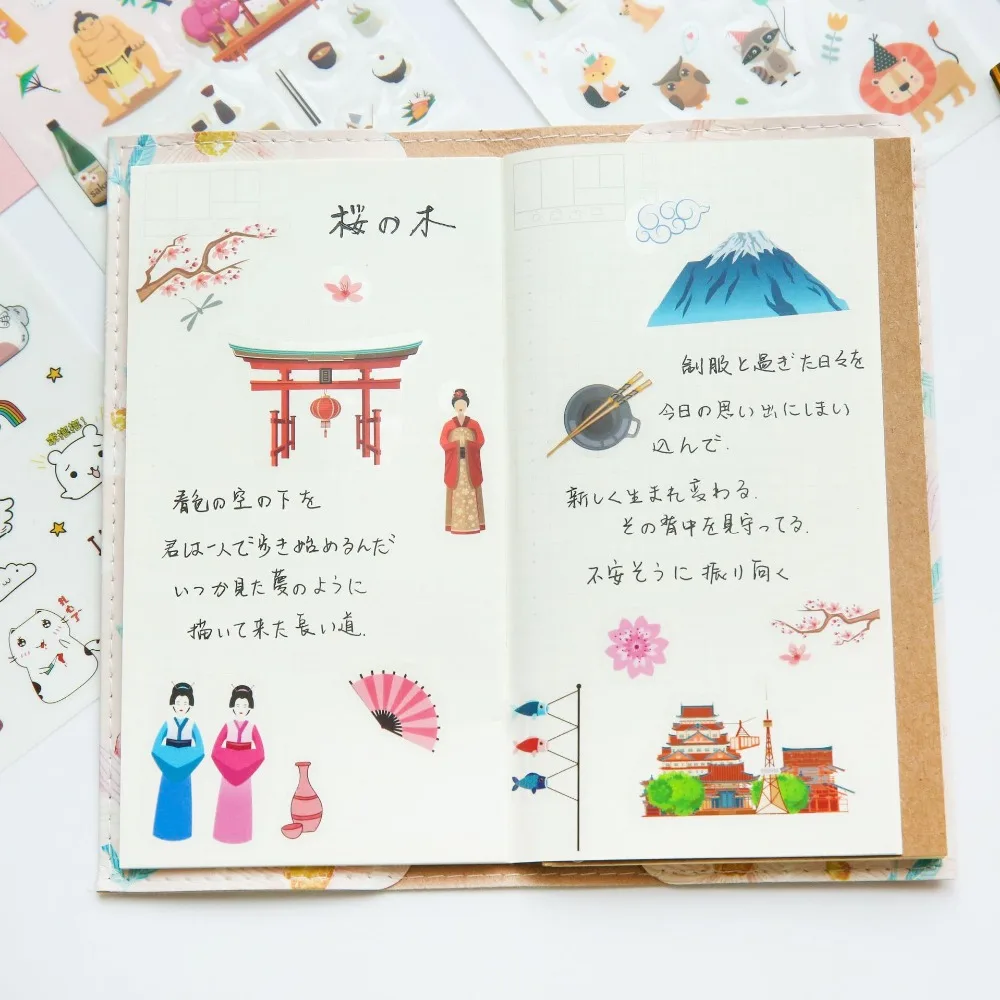 sake
桜の木
春色の空の下を
君は一人で歩き始めるんだ
いつか見た夢のように
描いて来た長い道.
制服と過ぎた日々を
今日の思い出にしまい
込んで.
新しく生まれ変わる.
その背中を見守ってる.
不安そうに振り向く